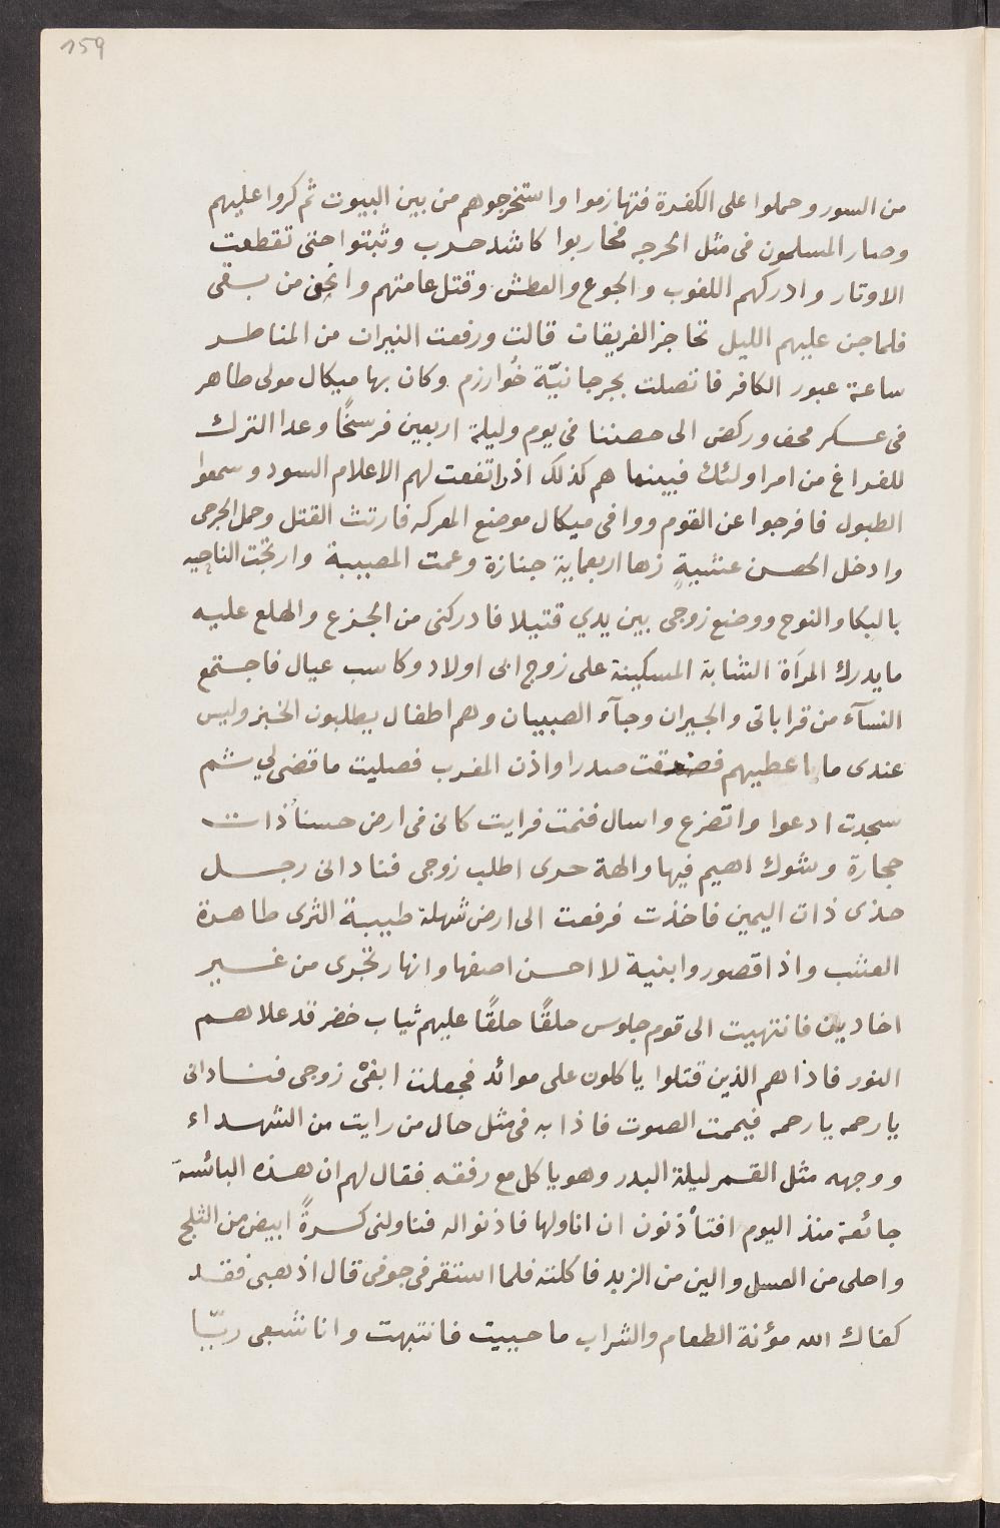 159
من السور وحملوا على الكفرة فتهازموا واستخرجوهم من بين البيوت ثم كروا عليهم
وصار المسلمون فى مثل الحرجه فحاربوا كاشد حرب وثبتوا حتى تقطعت
الاوتار وادركهم اللغوب والجوع والعطش وقتل عامتهم واثخن من بقى
فلما جن عليهم الليل تحاجز الفريقان قالت ورفعت النيران من المناظر
ساعة عبور الكافر فاتصلت بجرجانيّة خُوارزم وكان بها ميكال مولى طاهر
فى عسكر مخف وركض الى حصننا فى يوم وليلة اربعين فرسخًا وعدا الترك
للفراغ من امر اولئك فبينما هم كذلك اذ راتفعت لهم الاعلام السود وسمعوا
الطبول فافرجوا عن القوم ووافى ميكال موضع المعركه فارتث القتل وحمل الجرحى
وادخل الحصن عشيةٍ زها اربعماية جنازة وعمت المصيبة وارتجت الناحيه
بالبكا والنوح ووضع زوجى بين يدي قتيلا فادركنى من الجزع والهلع عليه
ما يدرك المرأة الشابة المسكينة على زوج ابى اولاد وكاسب عيال فاجتمع
النسآء من قراباتى والجيران وجآء الصبيان وهم اطفال يطلبون الخبز وليس
عندى ما اعطيهم فضقت صدرا واذن المغرب فصليت ما قضى لي ثم
سجدت ادعوا واتضرع واسال فنمت فرايت كانى فى ارض حسناً ذات
حجارة وشوك اهيم فيها والهة حرى اطلب زوجى فنادانى رجل
حذى ذات اليمين فاخذت فرفعت الى ارض شهلة طيبة الثرى طاهرة
العشب واذا قصور وابنية لا احسن اصفها وانهار تجرى من غير
اخاديد فانتهيت الى قوم جلوس حلقًا حلقًا عليهم ثياب خضر قد علاهم
النور فاذا هم الذين قتلوا ياكلون على موائد فجعلت ابغى زوجى فنادانى
يا رحمه يا رحمه فيممت الصوت فاذا به فى مثل حال من رايت من الشهداء
ووجهه مثل القمر ليلة البدر وهو ياكل مع رفقه فقال لهم ان هذه البائسة
جائعة منذ اليوم افتأذنون ان اناولها فاذنواله فناولنى كسرةً ابيض من الثلج
واحلى من العسل والين من الزبد فاكلته فلما استقر فى جوفى قال اذهبى فقد
كفاك الله مؤنة الطعام والشراب ما حييت فانتبهت وانا شبعى ريّا